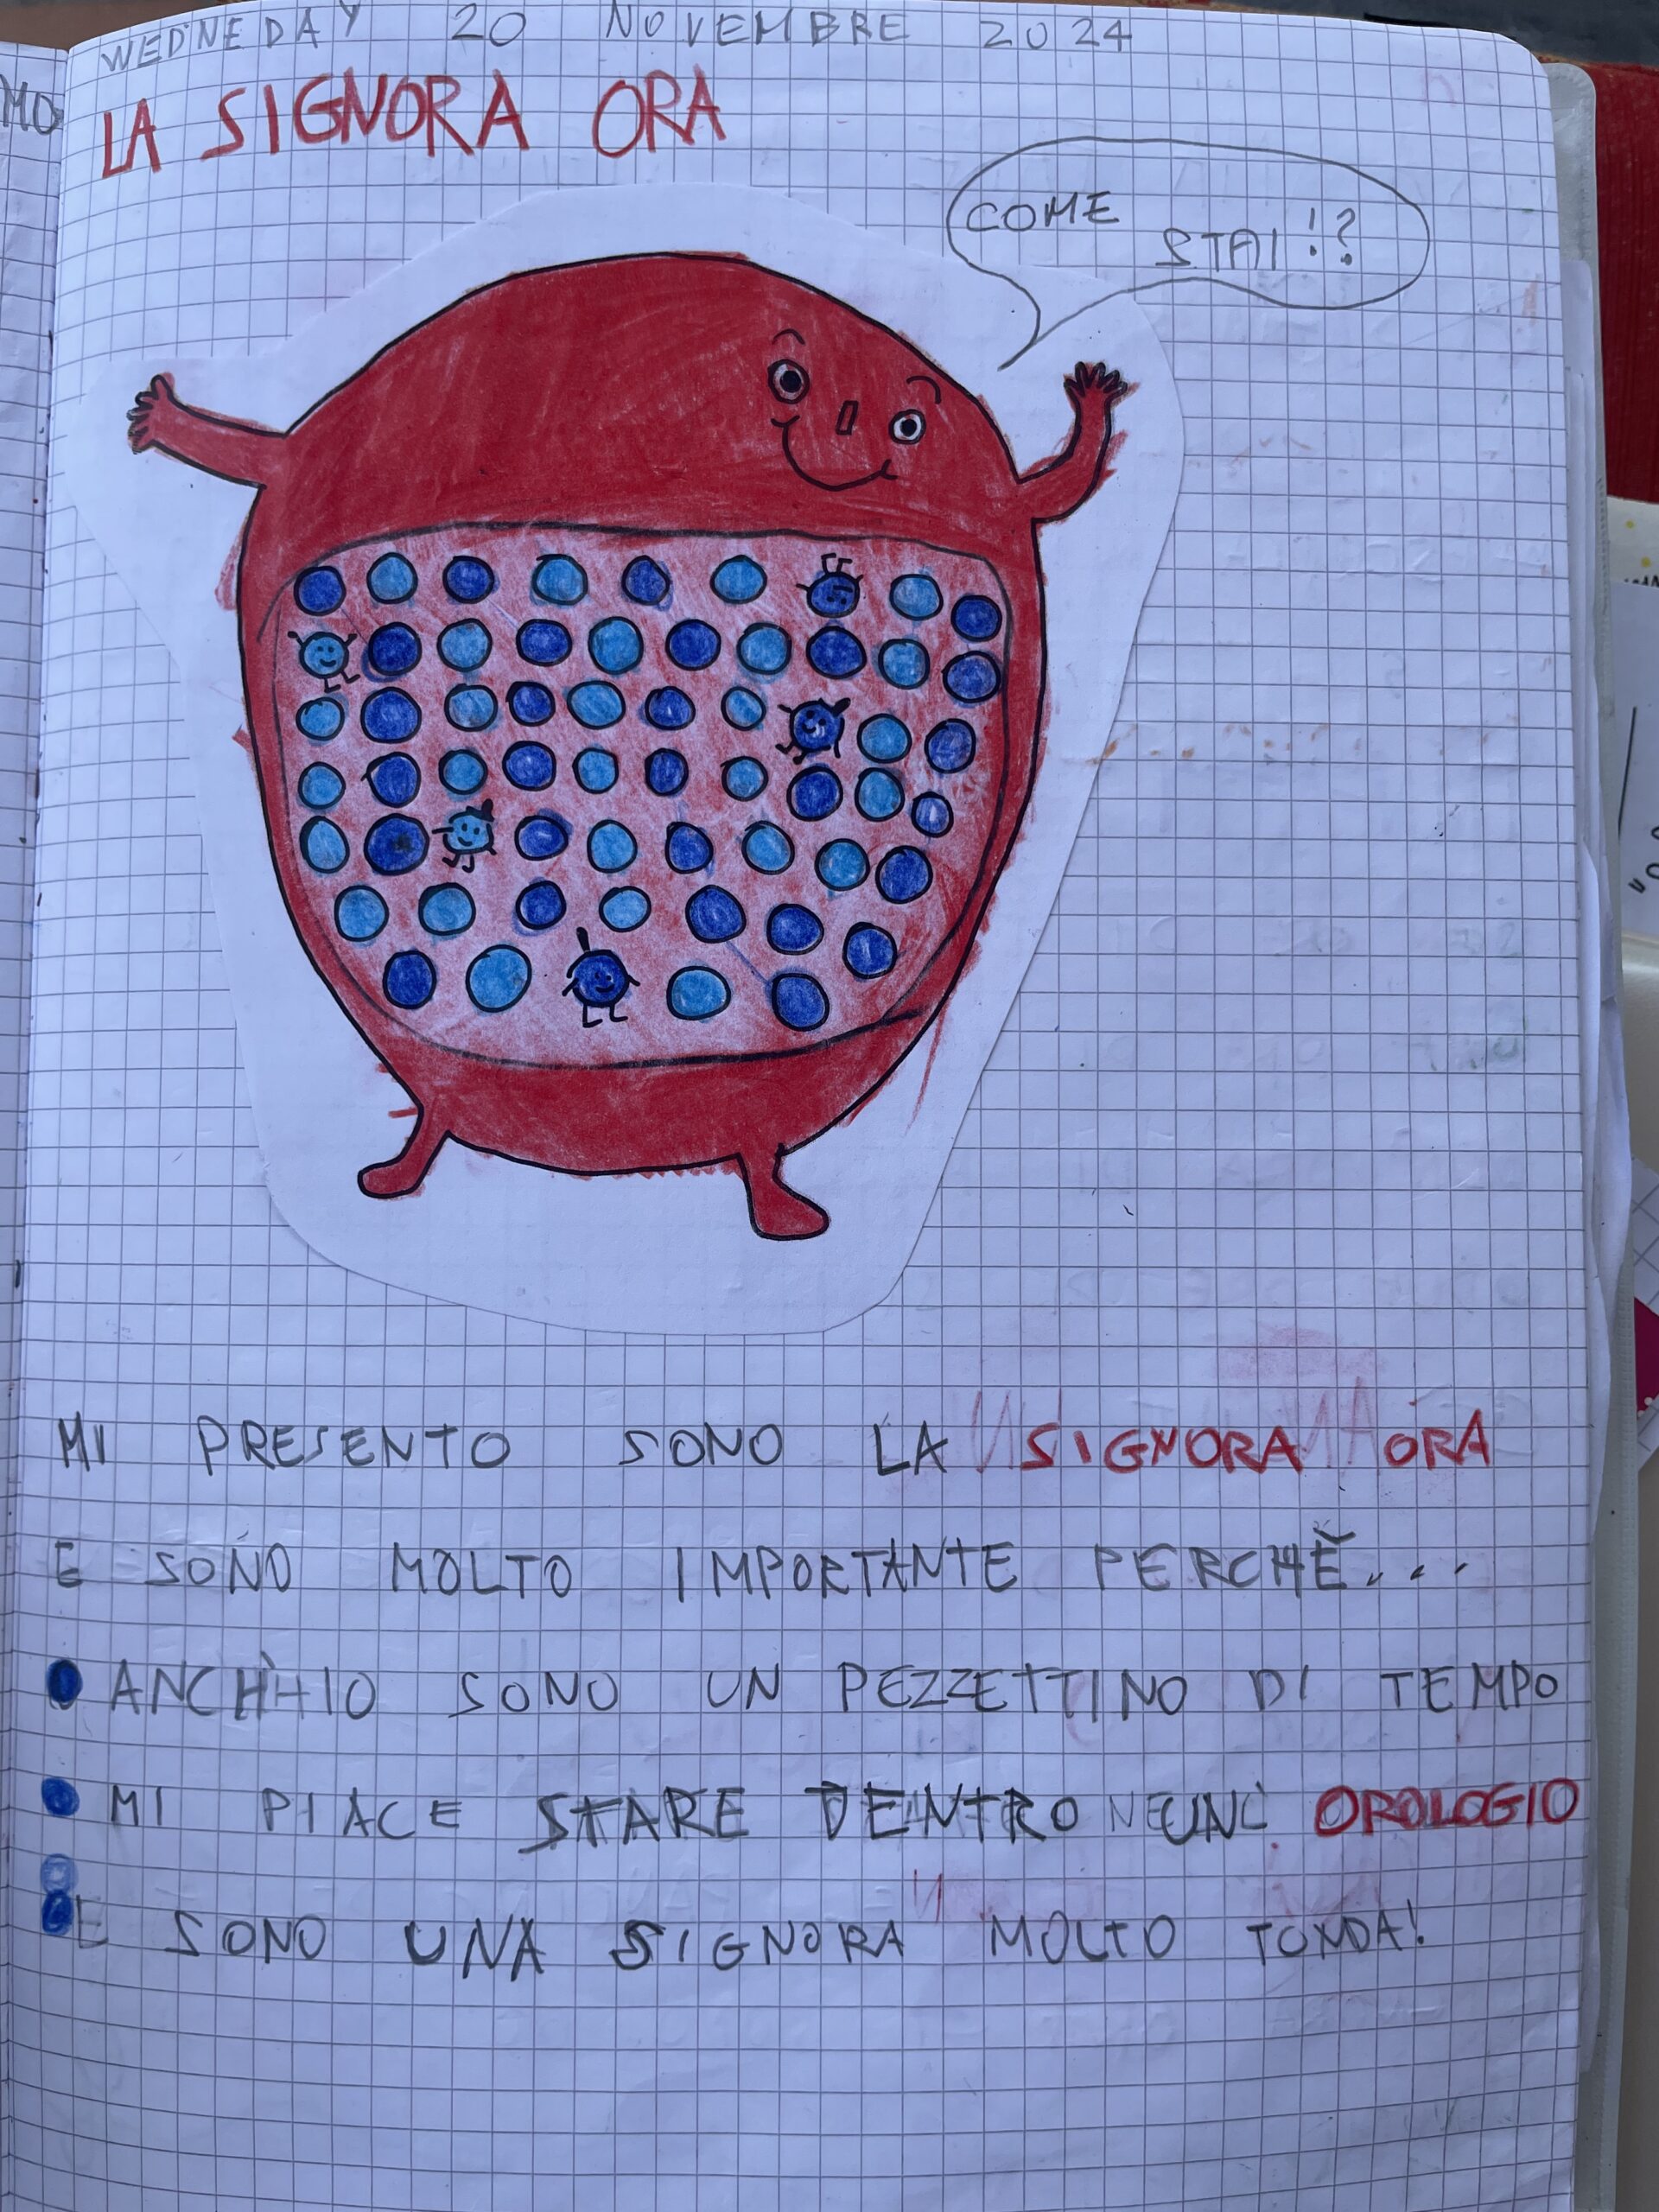 WEDNEDAY 20 NOVEMBRE 2024
LA SIGNORA ORA
COME
STAI!?
MI PRESENTO SONO LA SIGNORA ORA
E SONO MOLTO IMPORTANTE PERCHÈ...
ANCH'IO SONO UN PEZZETTINO DI TEMPO
MI PIACE STARE DENTRO OROLOGIO
E SONO UNA SIGNORA MOLTO TONDA!